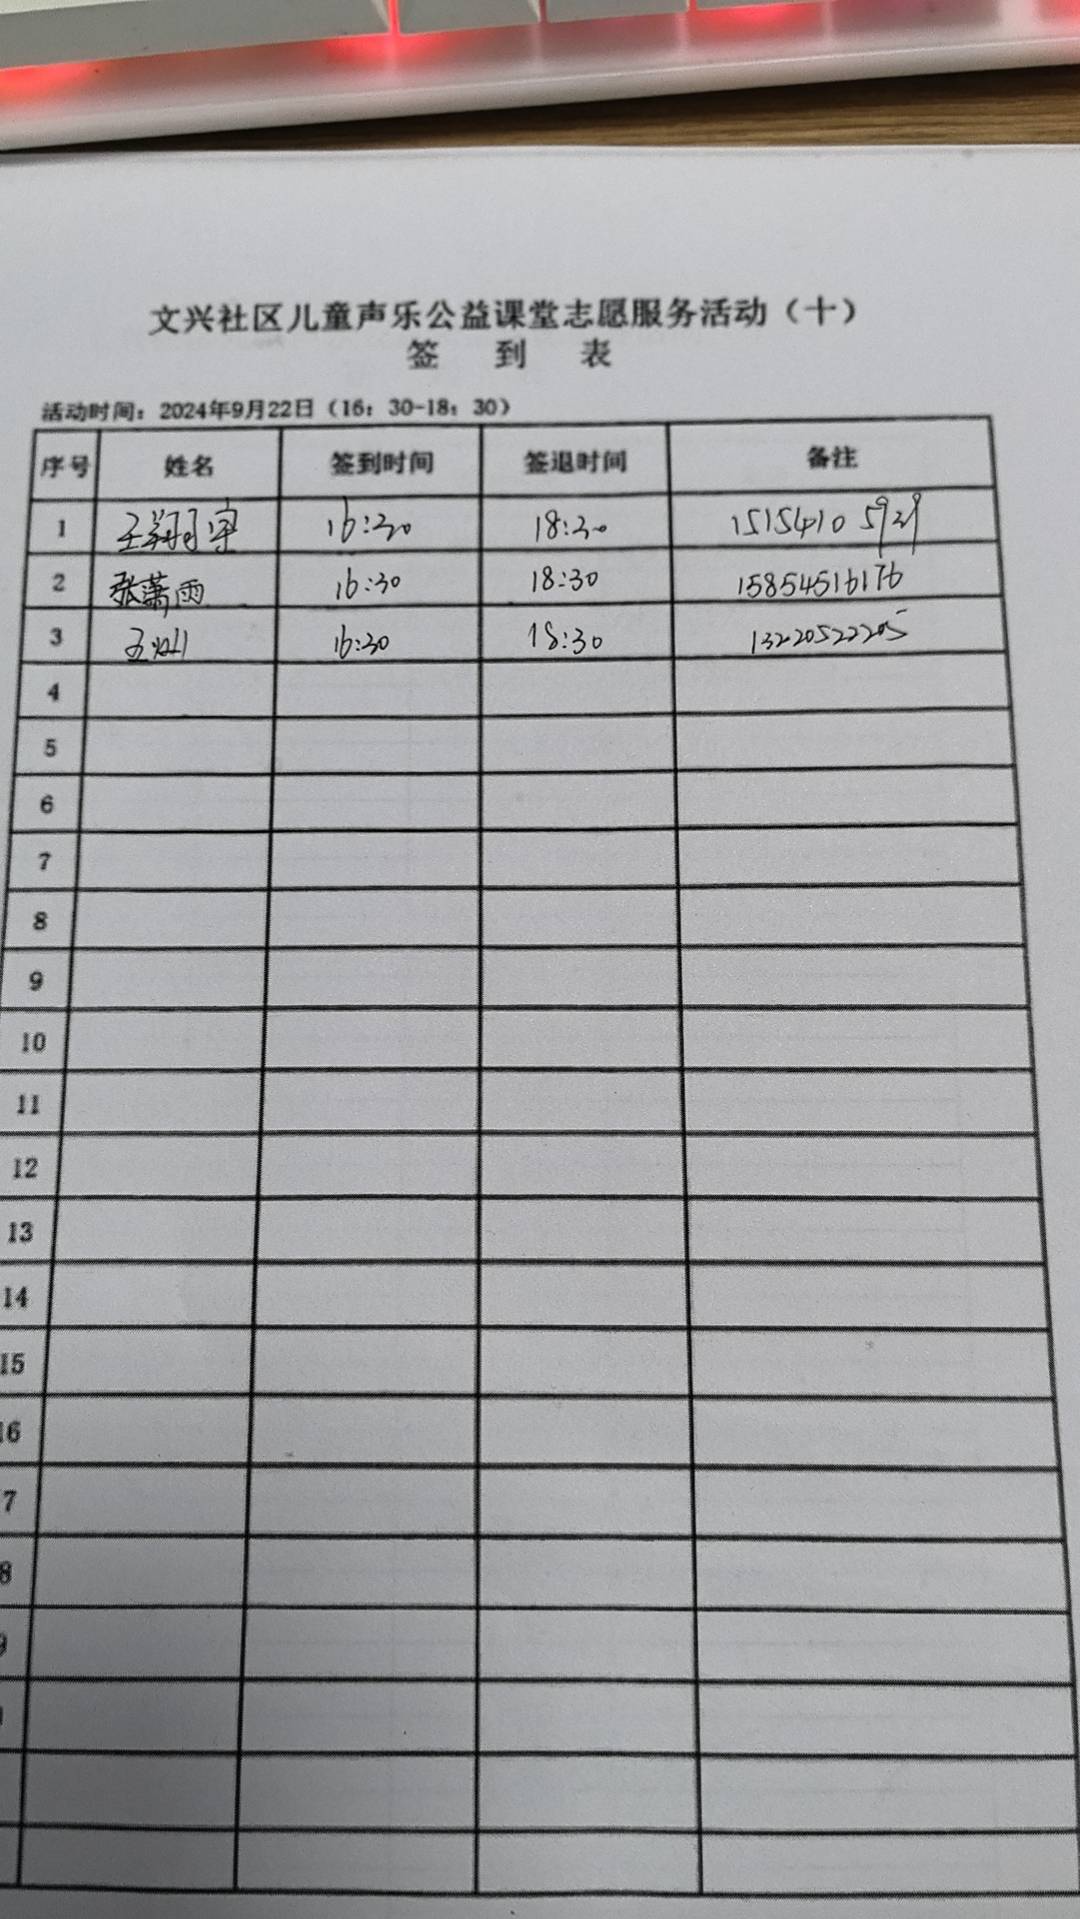 文兴社区儿童声乐公益课堂志愿服务活动（十）
签 到 表
活动时间：2024年9月22日（16：30-18：30）
序号 姓名 签到时间 签退时间 备注
1 王翔宇 16:30 18:30 15154105929
2 张萧雨 16:30 18:30 15854516176
3 16:30 18:30 13220522205
4
5
6
7
8
9
10
11
12
13
14
15
16
7
8
9